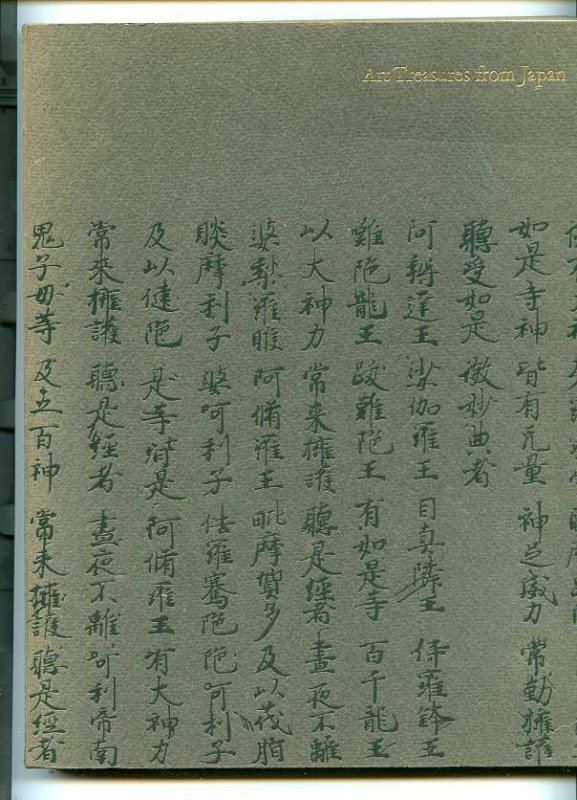 Art Treasures from Japan
如是等神 皆有无量 神足威力 常勤擁護
聽受如是 微妙典者
阿耨達王 娑伽羅王 目真隣王 伊羅鉢王
難陁龍王 跋難陁王 有如是等 百千龍王
以大神力 常来擁護 聽是經者 晝夜不離
婆梨羅睺 阿脩羅王 毗摩質多 及以茂脂
睒摩利子 婆呵利子 佉羅騫陁 陁呵利子
及以健陁 是等皆是 阿脩羅王 有大神力
常來擁護 聽是經者 晝夜不離 呵利帝南
鬼子母等 及五百神 常来擁護 聽是經者